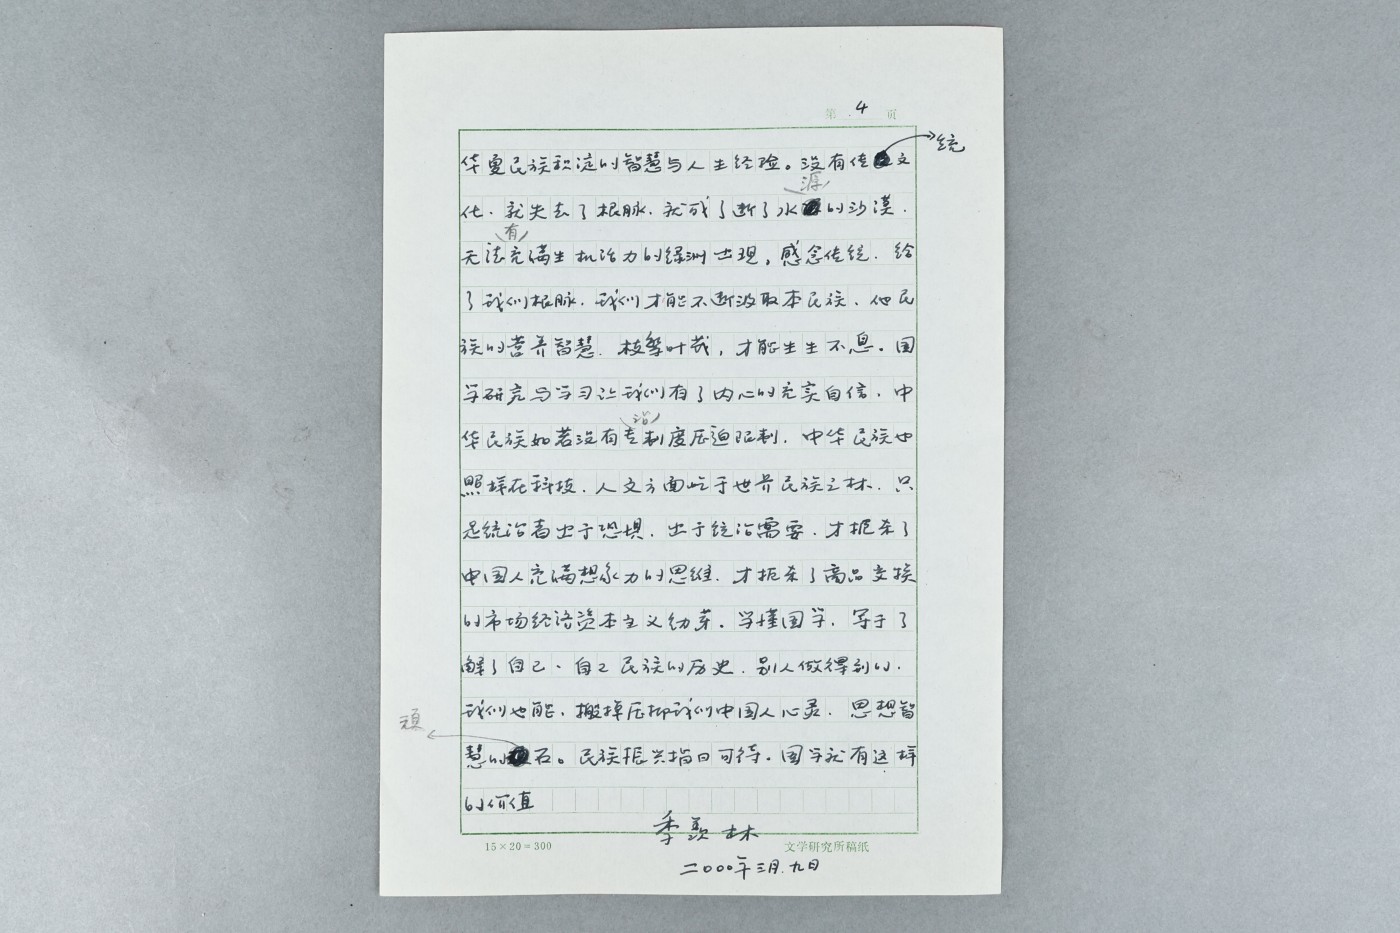 第 4 页
统
华夏民族积淀的智慧与人生经验。没有传文
源
化、就失去了根脉、就成了断了水的沙漠、
有
无法充满生机活力的绿洲出现，感念传统、给
了我们根脉、我们才能不断汲取本民族、他民
族的营养智慧、枝繁叶茂，才能生生不息。国
学研究与学习让我们有了内心的充实自信、中
治
华民族如若没有专制度压迫限制、中华民族也
照样在科技、人文方面屹于世界民族之林、只
是统治者出于恐惧、出于统治需要、才扼杀了
中国人充满想象力的思维、才扼杀了商品交换
的市场经济资本主义幼芽、学懂国学、等于了
解了自己、自己民族的历史、别人做得到的、
我们也能、搬掉压抑我们中国人心灵、思想智
顽
慧的石。民族振兴指日可待、国学就有这样
的价值
季羡林
15×20=300 文学研究所稿纸
二〇〇〇年三月九日